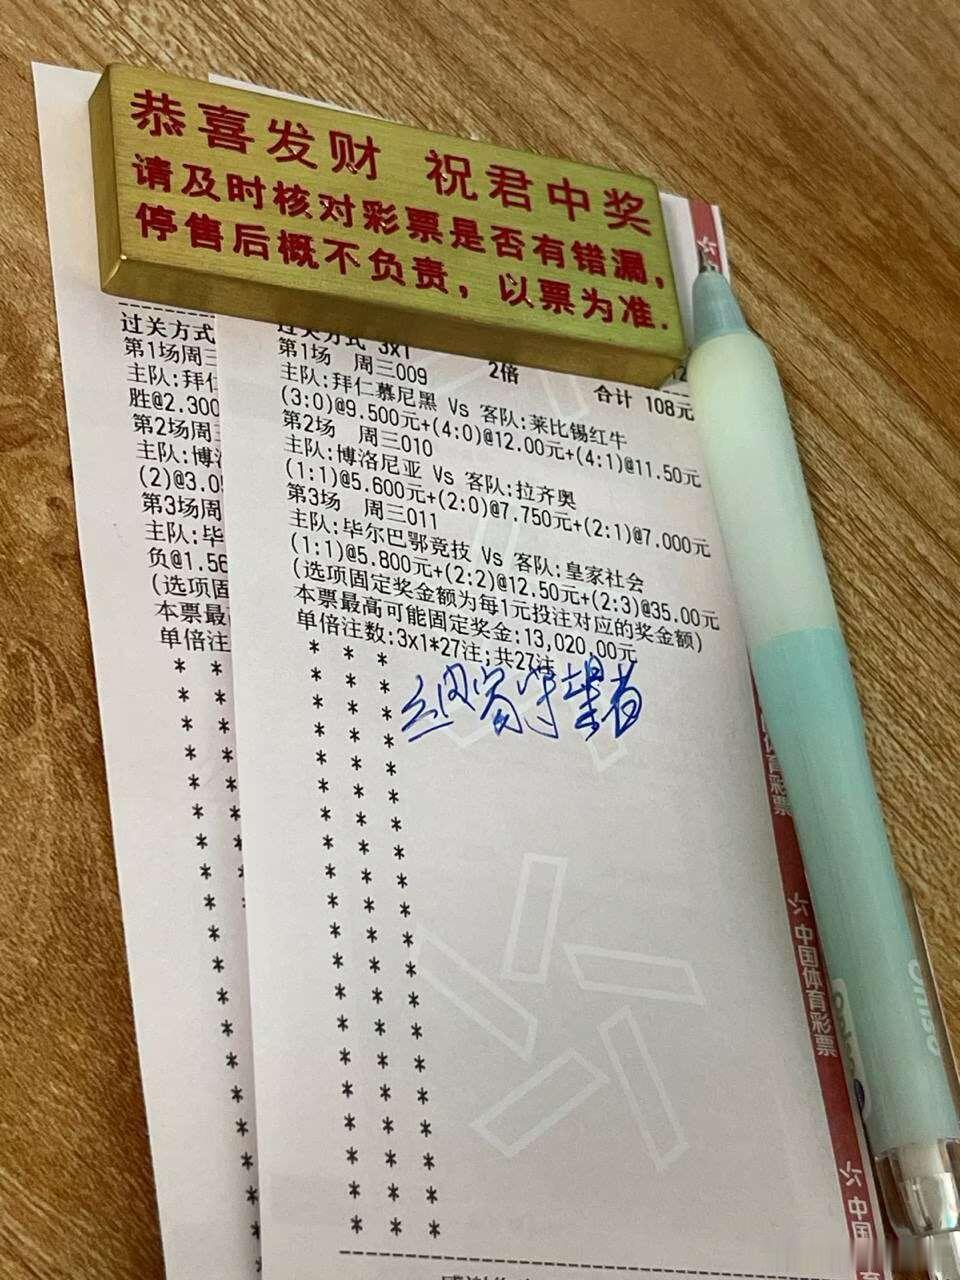 恭喜发财 祝君中奖
请及时核对彩票是否有错漏，
停售后概不负责，以票为准.
过关方式
第1场周三
主队:拜仁
胜@2.300
第2场周三
主队:博洛
(2)@3.0
第3场周
主队:毕
负@1.56
(选项固
本票最高
单倍注
过关方式 3x1
2倍
合计 108元
第1场 周三009
主队:拜仁慕尼黑 Vs 客队:莱比锡红牛
(3:0)@9.500元+(4:0)@12.00元+(4:1)@11.50元
第2场 周三010
主队:博洛尼亚 Vs 客队:拉齐奥
(1:1)@5.600元+(2:0)@7.750元+(2:1)@7.000元
第3场 周三011
主队:毕尔巴鄂竞技 Vs 客队:皇家社会
(1:1)@5.800元+(2:2)@12.50元+(2:3)@35.00元
(选项固定奖金额为每1元投注对应的奖金额)
本票最高可能固定奖金:13,020.00元
单倍注数:3x1*27注;共27注
守望者
体育彩票
中国体育彩票
中国